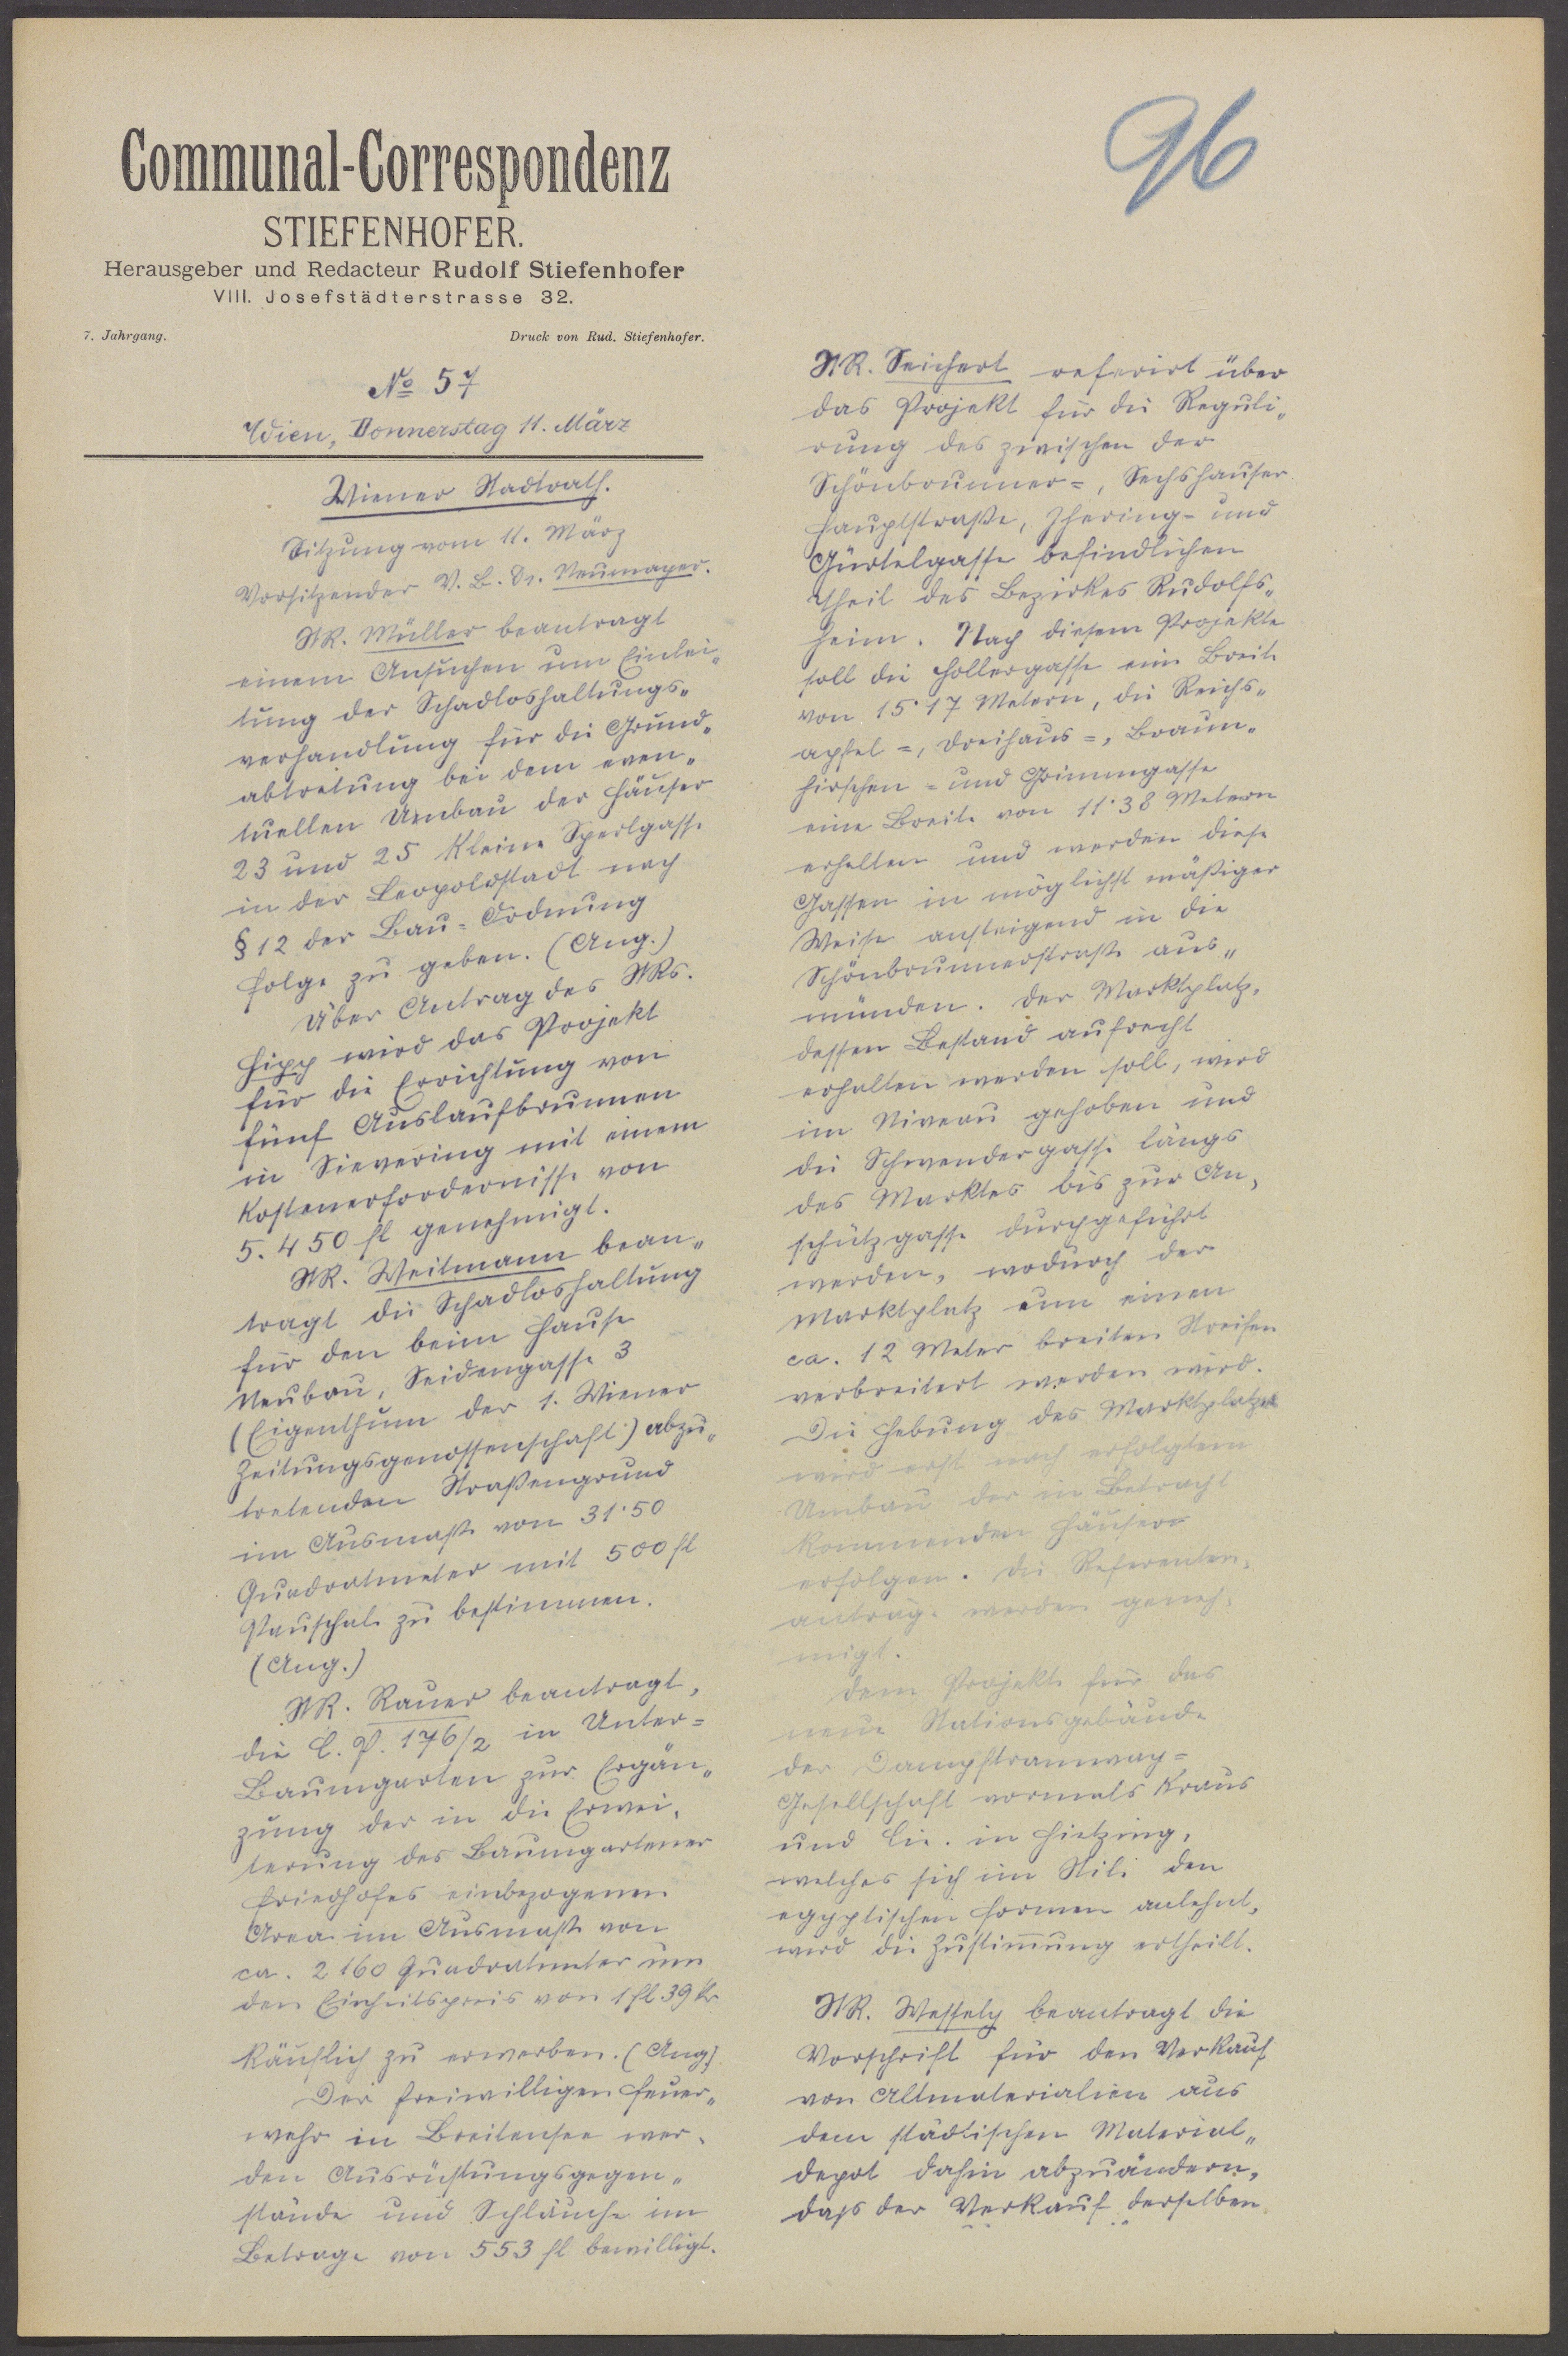 96
Communal-Correspondenz
STIEFENHOFER.
Herausgeber und Redacteur Rudolf Stiefenhofer
VIII. Josefstädterstrasse 32.
7. Jahrgang.
Druck von Rud. Stiefenhofer.
No 57
Wien, Donnerstag 11. März
Wiener Stadtrath.
Sitzung vom 11. März
Vorsitzender V. B. Dr. Neumayer.
StR. Müller beantragt
einem Ansuchen um Einlei„
tung der Schadloshaltungs„
verhandlung für die Grund„
abtretung bei dem even„
tuellen Umbau der Häuser
23 und 25 kleine Sperlgasse
in der Leopoldstadt nach
§ 12 der Bau=Ordnung
Folge zu geben. (Ang.)
Über Antrag des StRs.
Hipp wird das Projekt
für die Errichtung von
fünf Auslaufbrunnen
in Sievering mit einem
Kostenerfordernisse von
5.450 fl genehmigt.
StR. Weitmann bean„
tragt die Schadloshaltung
für den beim Hause
Neubau, Seidengasse 3
(Eigenthum der 1. Wiener
Zeitungsgenossenschaft) abzu„
tretenden Straßengrund
im Ausmaße von 31·50
Quadratmeter mit 500 fl
Pauschale zu bestimmen.
(Ang.)
StR. Rauer beantragt,
die C. P. 176/2 in Unter=
Baumgarten zur Ergän„
zung der in die Erwei„
terung des Baumgartener
Friedhofes einbezogenen
Area im Ausmaße von
ca. 2160 Quadratmeter um
den Einheitspreis von 1 fl 39 kr
käuflich zu erwerben. (Ang)
Der freiwilligen Feuer„
wehr in Breitensee wer„
den Ausrüstungsgegen„
stände und Schläuche im
Betrage von 553 fl bewilligt.
StR. Seichert referirt über
das Projekt für die Reguli„
rung des zwischen der
Schönbrunner=, Sechshauser
Hauptstraße, Jhering= und
Gürtelgasse befindlichen
Theil des Bezirkes Rudolfs„
heim. Nach diesem Projekte
soll die Hollergasse eine Breite
von 15·17 Metern, die Reichs„
apfel=, Dreihaus=, Braun„
hirschen= und Grimmgasse
eine Breite von 11·38 Metern
erhalten und werden diese
Gassen in möglichst mäßiger
Weise ansteigend in die
Schönbrunnerstraße aus„
münden. Der Marktplatz,
dessen Bestand aufrecht
erhalten werden soll, wird
im Niveau gehoben und
die Schwendergasse längs
des Marktes bis zur An„
schützgasse durchgeführt
werden, wodurch der
Marktplatz um einen
ca. 12 Meter breiten Streifen
verbreitert werden wird.
Die Hebung des Marktplatzes
wird erst nach erfolgtem
Umbau der in Betracht
kommenden Häuser
erfolgen. Die Referenten„
anträge werden geneh„
migt.
Dem Projekte für das
neue Stationsgebäude
der Dampftramway=
Gesellschaft vormals Kraus
und Cie. in Hietzing,
welches sich im Stile den
egyptischen Formen anlehnt,
wird die Zustimmung ertheilt.
StR. Wessely beantragt die
Vorschrift für den Verkauf
von Altmaterialien aus
dem städtischen Material„
depot dahin abzuändern,
dass der Verkauf derselben